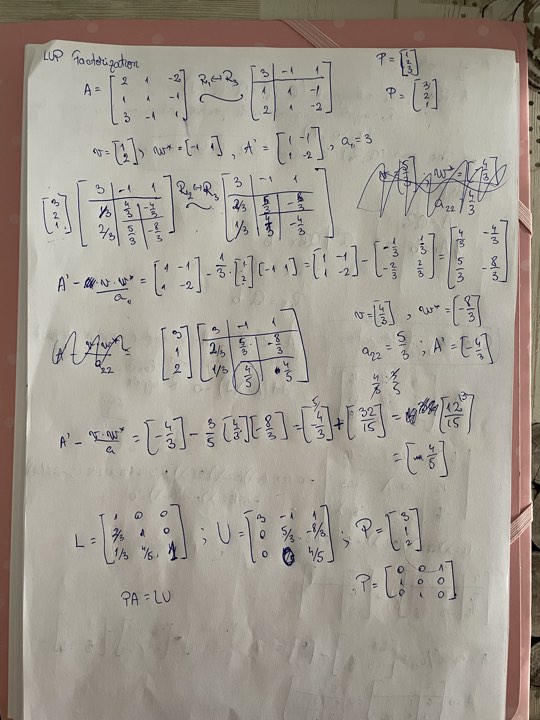 LUP Factorization
A = [2 1 -2; 1 1 -1; 3 -1 1] R₁↔R₃ [3 -1 1; 1 1 -1; 2 1 -2] P = [1; 2; 3]
P = [3; 2; 1]
v = [1; 2]; w* = [-1 1], A' = [1 -1; 1 -2], a₁₁ = 3
[3; 2; 1] [3 -1 1; 1/3 4/3 -4/3; 2/3 5/3 -8/3] R₂↔R₃ [3 -1 1; 2/3 5/3 -8/3; 1/3 4/3 -4/3]
A' - v·w*/a₁₁ = [1 -1; 1 -2] - 1/3 · [1; 2] [-1 1] = [1 -1; 1 -2] - [-1/3 1/3; -2/3 2/3] = [4/3 -4/3; 5/3 -8/3]
v = [4/3], w* = [-8/3]
a₂₂ = 5/3; A' = [-4/3]
[3; 1; 2] [3 -1 1; 2/3 5/3 -8/3; 1/3 4/5 4/5]
4/3 : 5/3
A' - v·w*/a = [-4/3] - 3/5 [4/3] [-8/3] = [-4/3] + [32/15] = [12/15]
= [4/5]
L = [1 0 0; 2/3 1 0; 1/3 4/5 1]; U = [3 -1 1; 0 5/3 -8/3; 0 0 4/5]; P = [3; 1; 2]
P = [0 0 1; 1 0 0; 0 1 0]
PA = LU